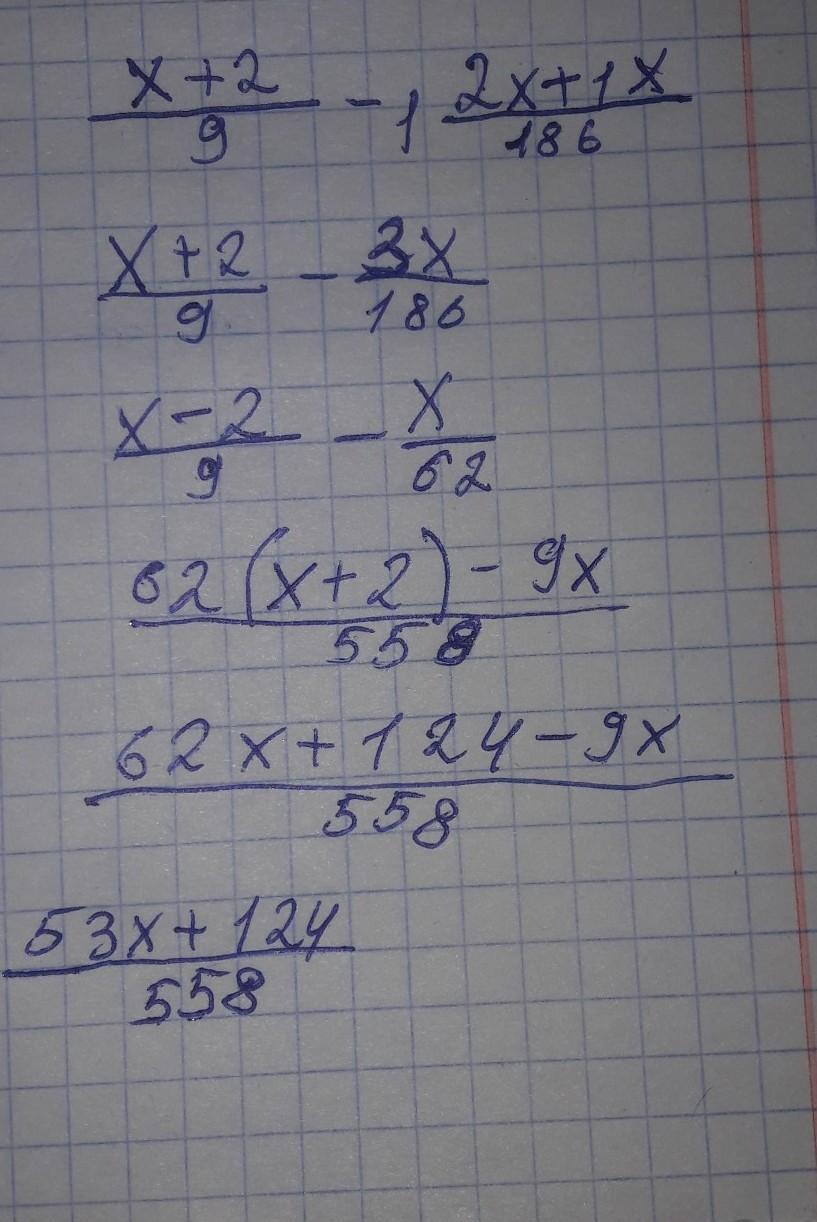 x+2/9 - 1 2x+1x/186
x+2/9 - 3x/186
x-2/9 - x/62
62(x+2)-9x/558
62x+124-9x/558
53x+124/558